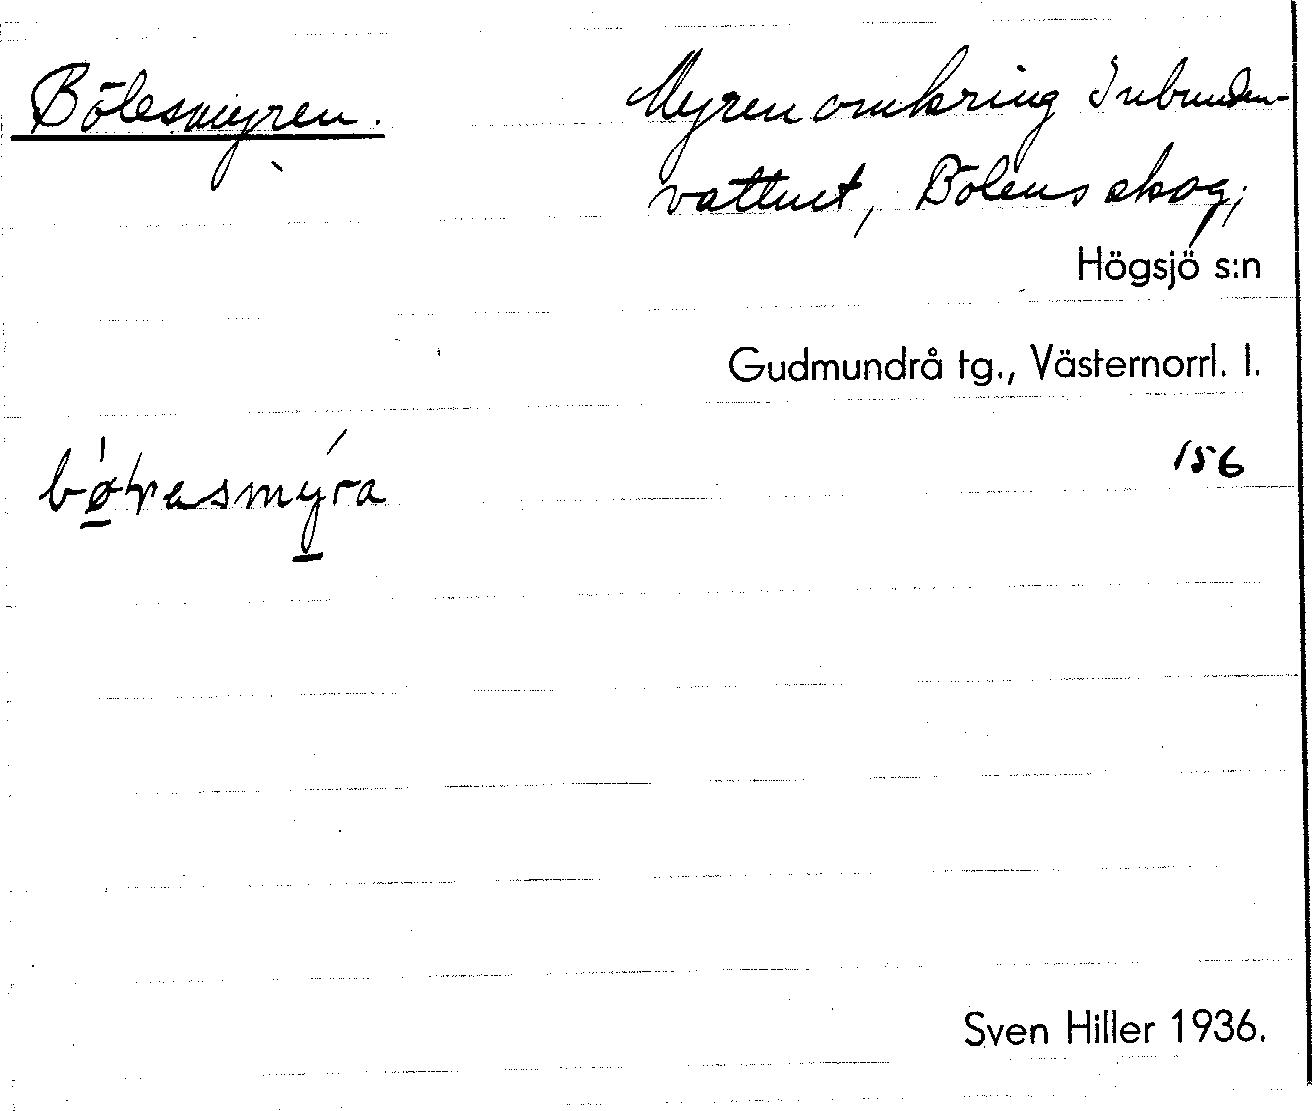 Bölesmyren.
Myren omkring Inbunden-
vattnet, Bölens skog,
Högsjö s:n
Gudmundrå tg., Västernorrl. l.
156
Sven Hiller 1936.